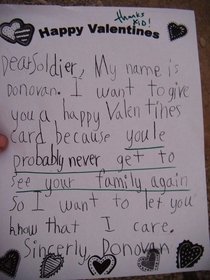 thanks
KID!
Happy Valentines
Dear Soldier, My name is
Donovan. I want to give
you a happy Valentines
card because youle
probably never get to
see your family again
So I want to let you
know that I care.
Sincerly Donovan